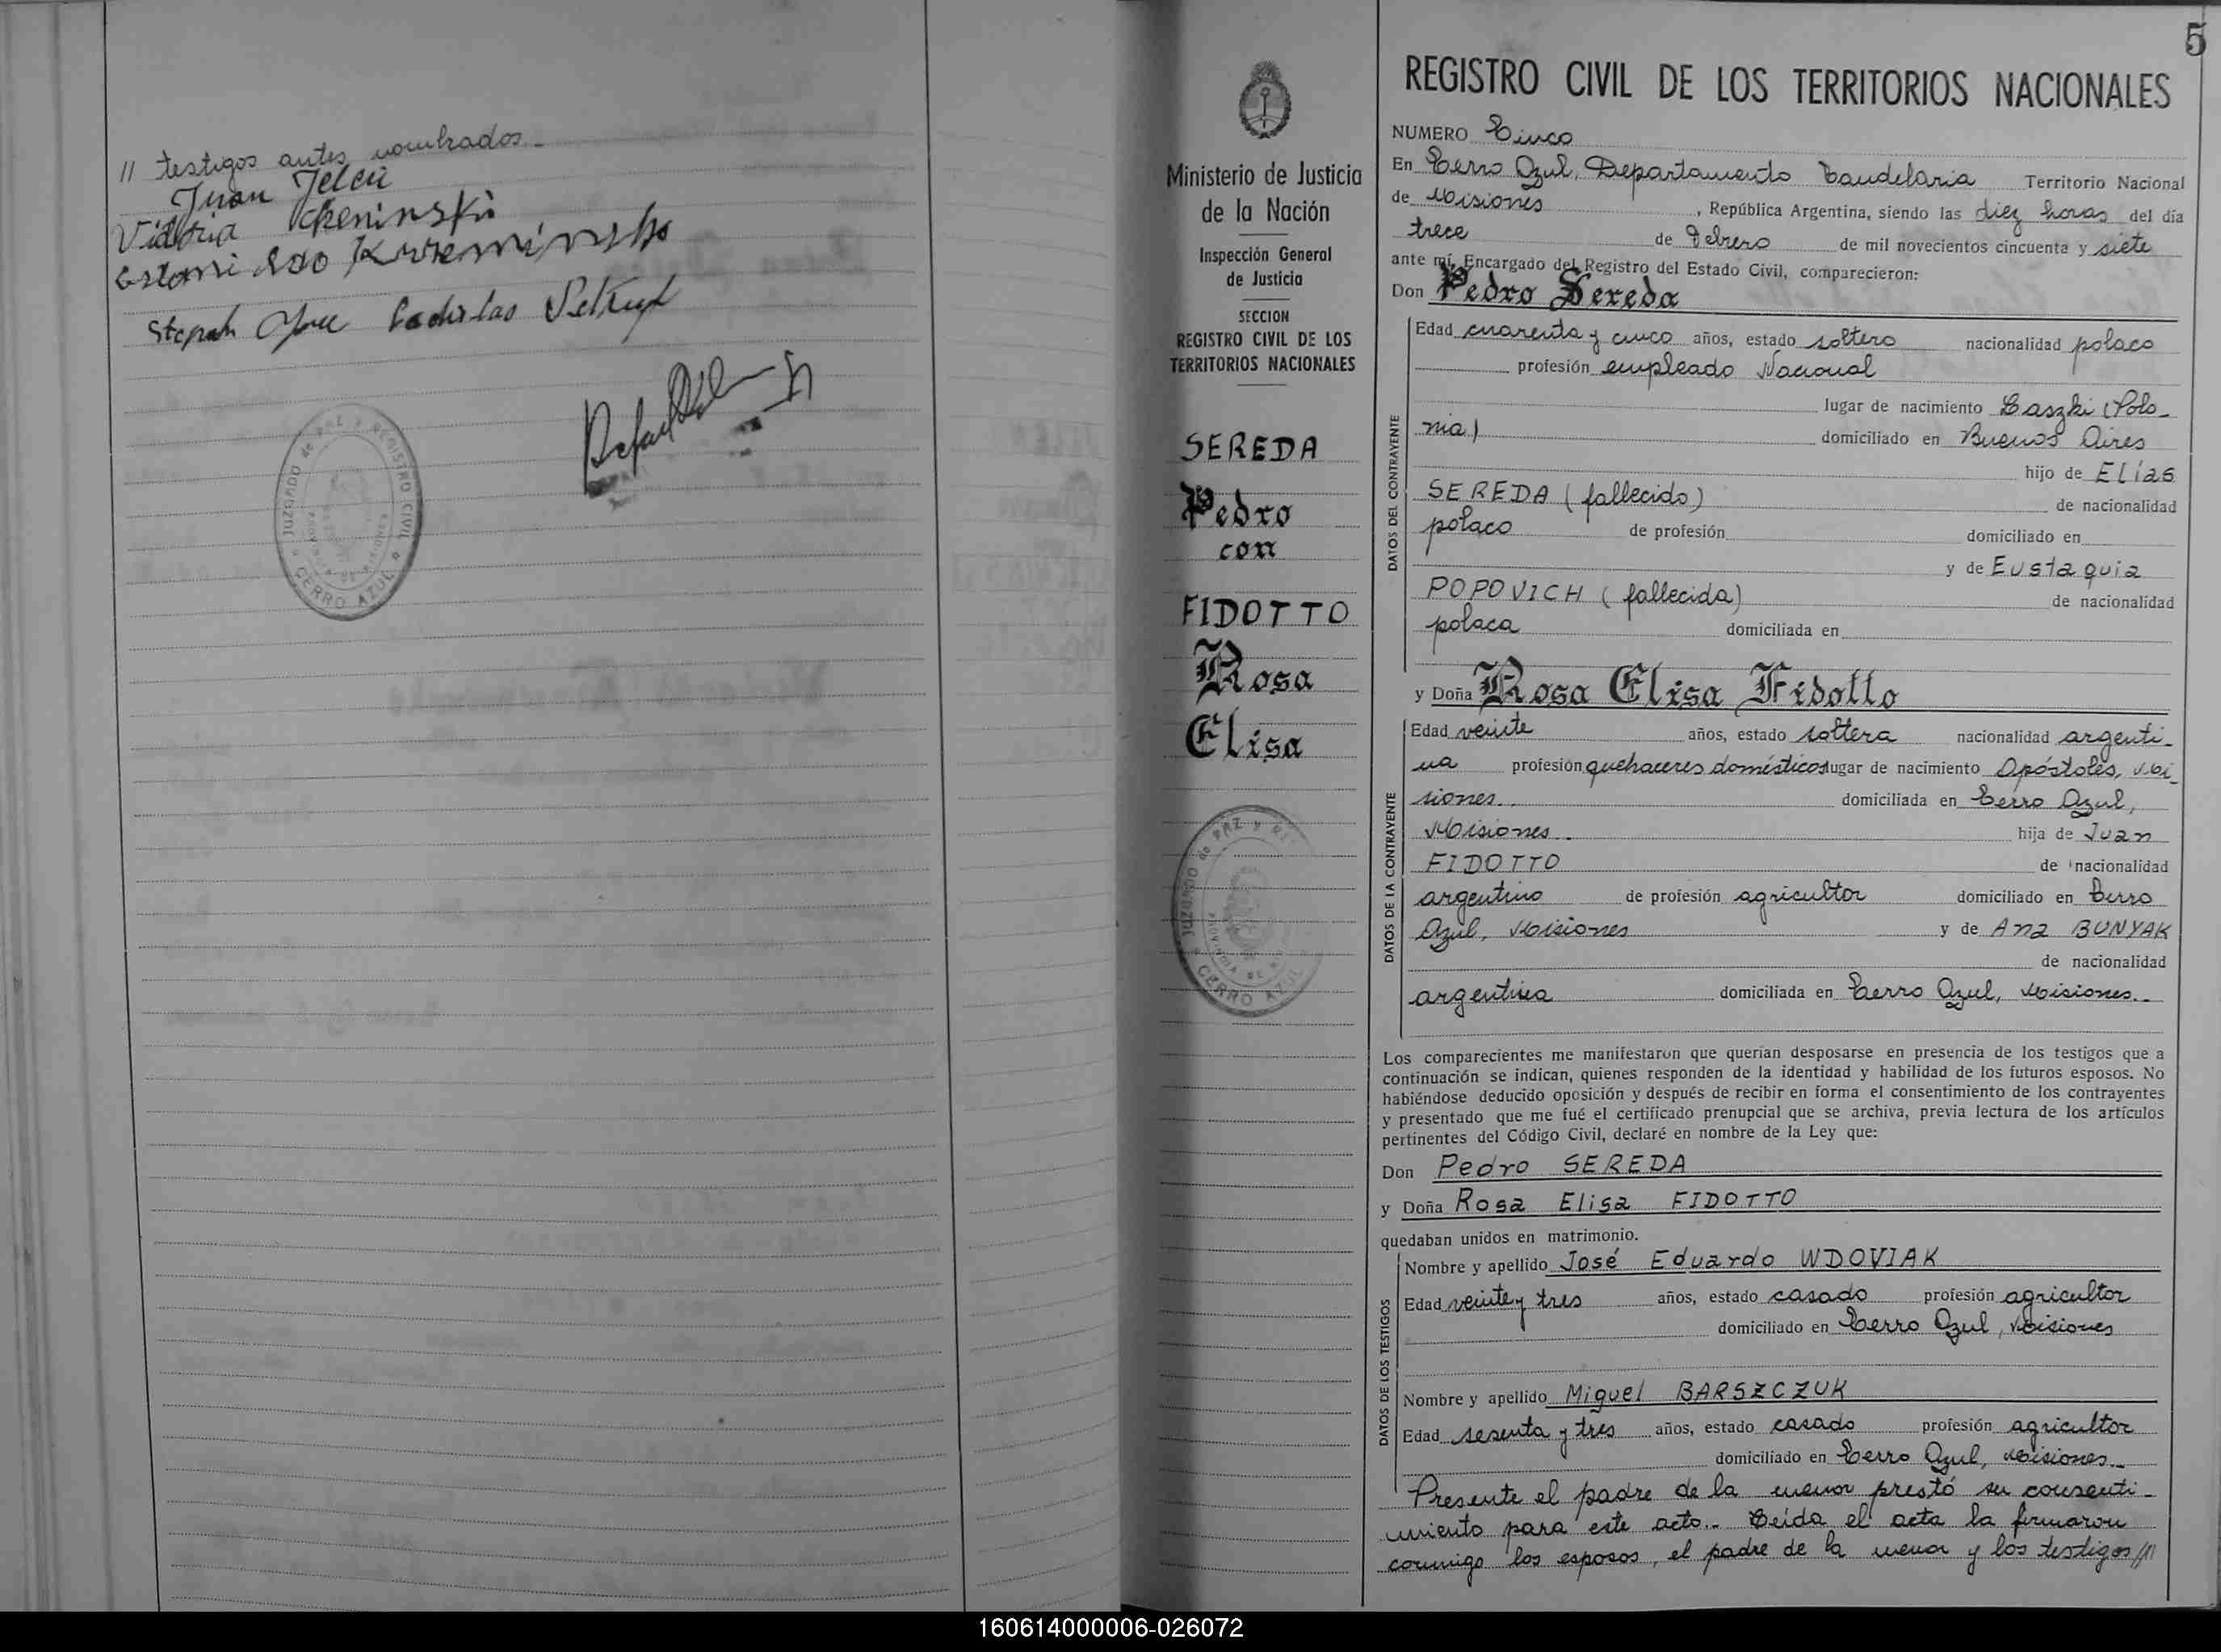 // testigos antes nombrados.-
Juan
Victoria
Ladislao
JUZGADO de PAZ Y REGISTRO CIVIL
CERRO AZUL
5
REGISTRO CIVIL DE LOS TERRITORIOS NACIONALES
Ministerio de Justicia
de la Nación
Inspección General
de Justicia
SECCION
REGISTRO CIVIL DE LOS
TERRITORIOS NACIONALES
SEREDA
Pedro
con
FIDOTTO
Rosa
Elisa
JUZGADO de PAZ Y
CERRO AZUL
NUMERO Cinco
En Cerro Azul, Departamento Candelaria Territorio Nacional
de Misiones, República Argentina, siendo las diez horas del día
trece de Febrero de mil novecientos cincuenta y siete
ante mí, Encargado del Registro del Estado Civil, comparecieron:
Don Pedro Sereda
DATOS DEL CONTRAYENTE
Edad cuarenta y cinco años, estado soltero nacionalidad polaco
profesión empleado Nacional
lugar de nacimiento Laszki (Polo-
nia) domiciliado en Buenos Aires
hijo de Elías
SEREDA (fallecido) de nacionalidad
polaco de profesión domiciliado en
y de Eustaquia
POPOVICH (fallecida) de nacionalidad
polaca domiciliada en
y Doña Rosa Elisa Fidotto
DATOS DE LA CONTRAYENTE
Edad veinte años, estado soltera nacionalidad argenti-
na profesión quehaceres domésticos lugar de nacimiento Apóstoles, Mi-
siones. domiciliada en Cerro Azul,
Misiones. hija de Juan
FIDOTTO de nacionalidad
argentino de profesión agricultor domiciliado en Cerro
Azul, Misiones y de Ana BUNYAK
de nacionalidad
argentina domiciliada en Cerro Azul, Misiones.-
Los comparecientes me manifestaron que querían desposarse en presencia de los testigos que a
continuación se indican, quienes responden de la identidad y habilidad de los futuros esposos. No
habiéndose deducido oposición y después de recibir en forma el consentimiento de los contrayentes
y presentado que me fué el certificado prenupcial que se archiva, previa lectura de los artículos
pertinentes del Código Civil, declaré en nombre de la Ley que:
Don Pedro SEREDA
y Doña Rosa Elisa FIDOTTO
quedaban unidos en matrimonio.
DATOS DE LOS TESTIGOS
Nombre y apellido José Eduardo WDOVIAK
Edad veinte y tres años, estado casado profesión agricultor
domiciliado en Cerro Azul, Misiones
Nombre y apellido Miguel BARSZCZUK
Edad sesenta y tres años, estado casado profesión agricultor
domiciliado en Cerro Azul, Misiones.-
Presente el padre de la menor prestó su consenti-
miento para este acto.- Leída el acta la firmaron
conmigo los esposos, el padre de la menor y los testigos //
160614000006-026072